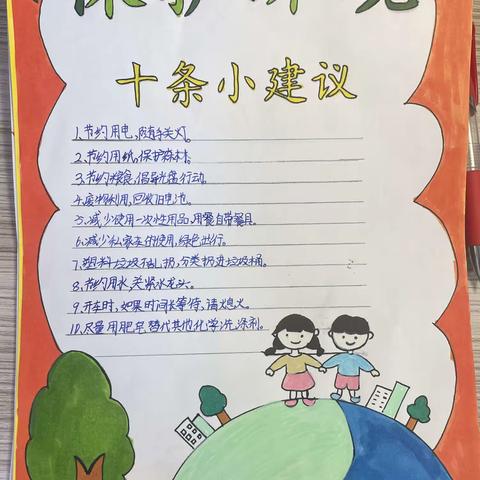 保护环境
十条小建议
1.节约用电,随手关灯。
2.节约用纸,保护森林。
3.节约粮食,倡导光盘行动。
4.废物利用,回收旧电池。
5.减少使用一次性用品,用餐自带餐具。
6.减少私家车的使用,绿色出行。
7.塑料垃圾不乱扔,分类扔进垃圾桶。
8.节约用水,关紧水龙头。
9.开车时,如果时间长等待,请熄火。
10.尽量用肥皂替代其他化学洗涤剂。